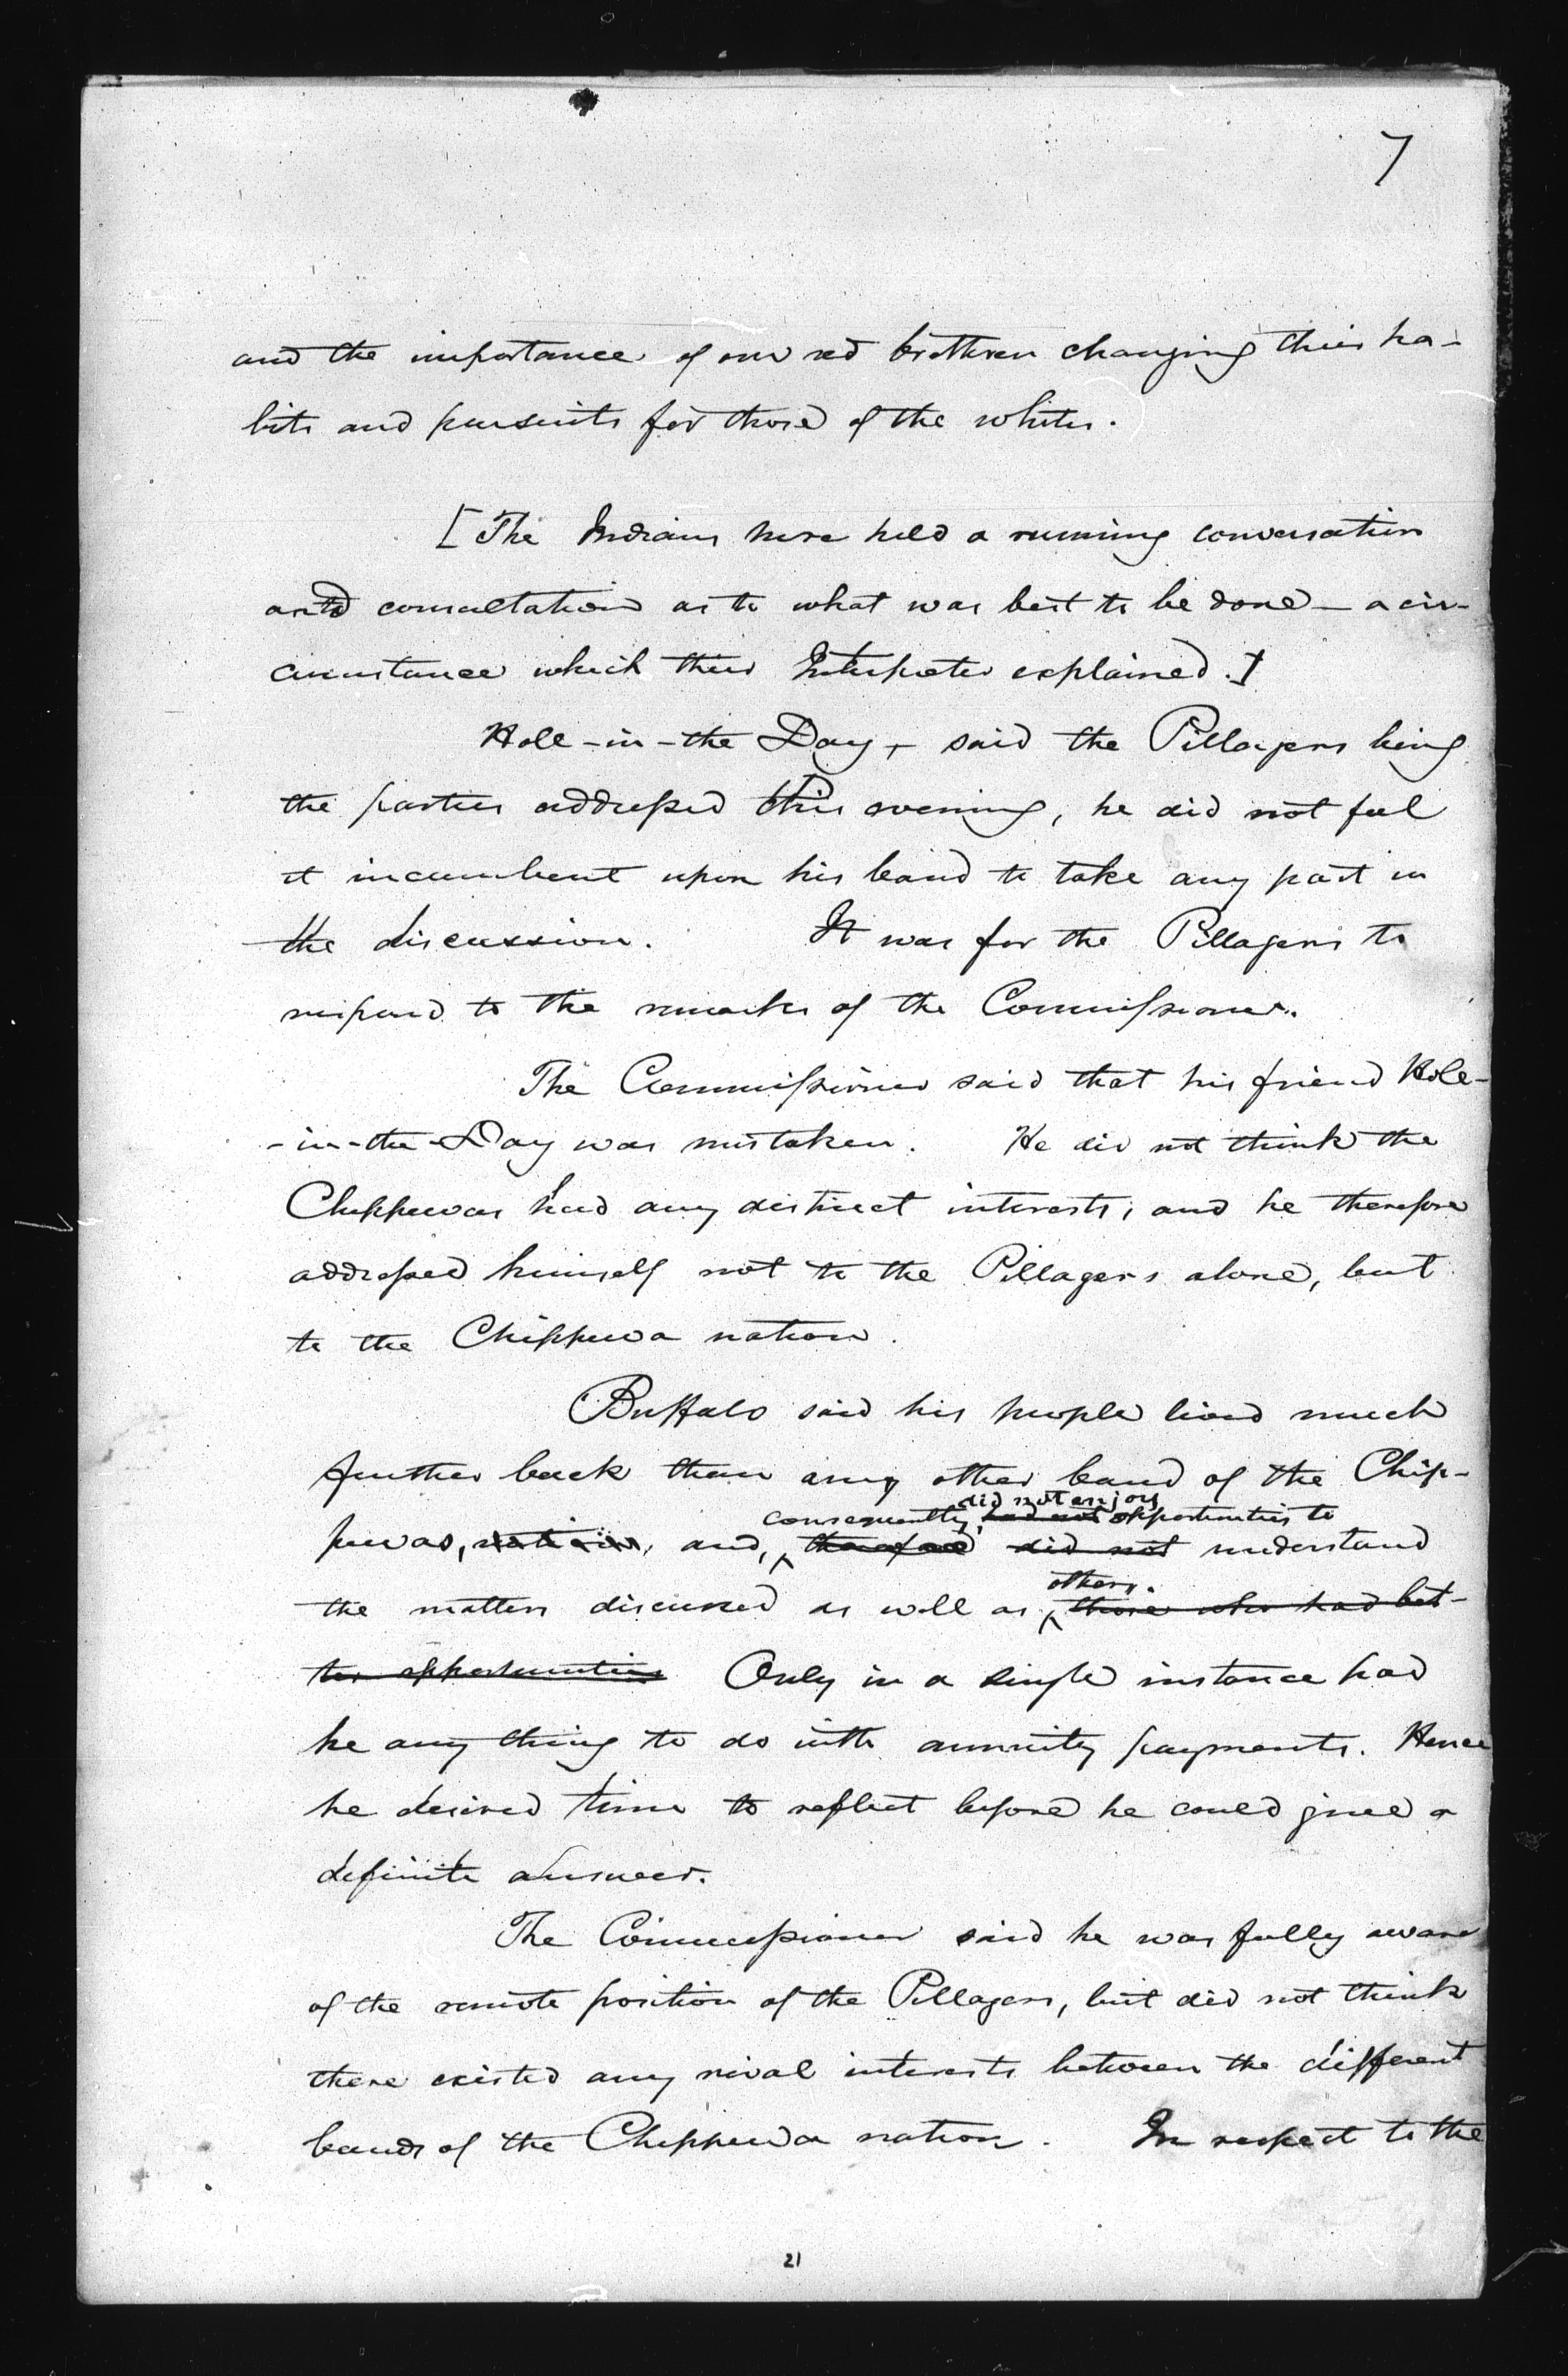 7
and the importance of our red brethren changing their ha-
bits and pursuits for those of the whites.
[The Indians here held a running conversation
and consultation as to what was best to be done — a cir-
cumstance which their Interpreter explained.]
Hole-in-the Day, said the Pillagers being
the parties addressed this evening, he did not feel
it incumbent upon his band to take any part in
the discussion. It was for the Pillagers to
respond to the remarks of the Commissioner.
The Commissioner said that his friend Hole-
-in-the-Day was mistaken. He did not think the
Chippewas had any distinct interests; and he therefore
addressed himself not to the Pillagers alone, but
to the Chippewa nation.
Buffalo said his people lived much
further back than any other band of the Chip-
did not enjoy
consequently, had not opportunities to
pewas, nation, and, therefore did not understand
others.
the matters discussed as well as those who had bet-
ter opportunities Only in a single instance had
he any thing to do with annuity payments. Hence
he desired time to reflect before he could give a
definite answer.
The Commissioner said he was fully aware
of the remote position of the Pillagers, but did not think
there existed any rival interests between the different
bands of the Chippewa nation. In respect to the
21